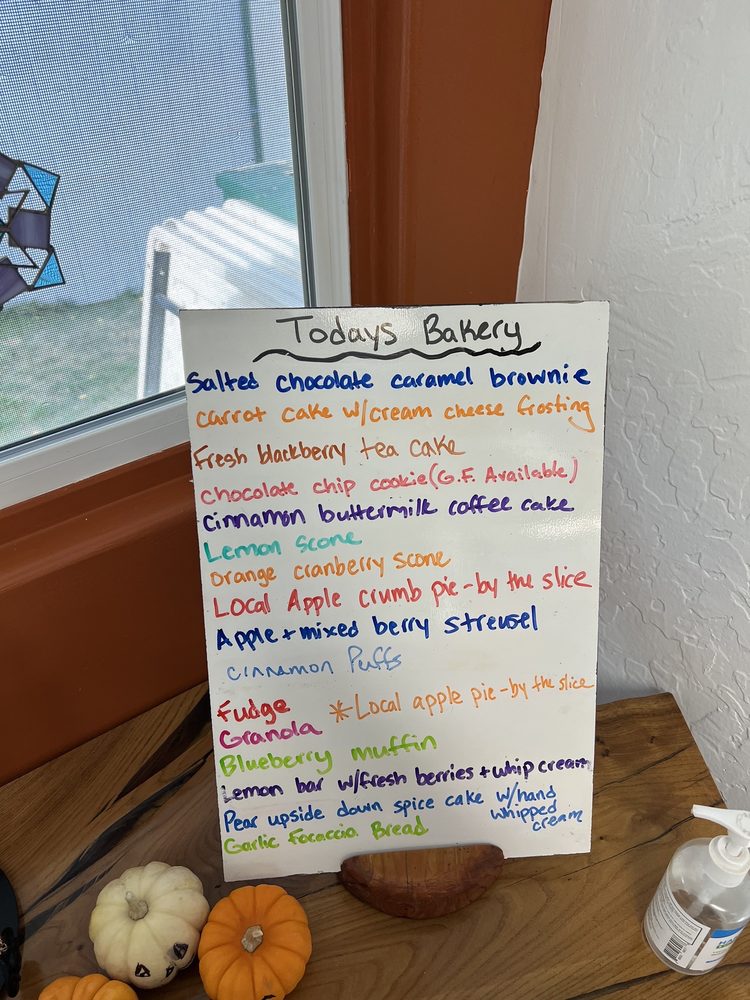 Todays Bakery
Salted chocolate caramel brownie
carrot cake w/cream cheese frosting
Fresh blackberry tea cake
chocolate chip cookie (G.F. Available)
cinnamon buttermilk coffee cake
Lemon scone
orange cranberry scone
Local Apple crumb pie-by the slice
Apple + mixed berry streusel
cinnamon Puffs
Fudge
*Local apple pie-by the slice
Granola
Blueberry muffin
Lemon bar w/fresh berries + whip cream
Pear upside down spice cake w/hand whipped cream
Garlic Focaccia Bread